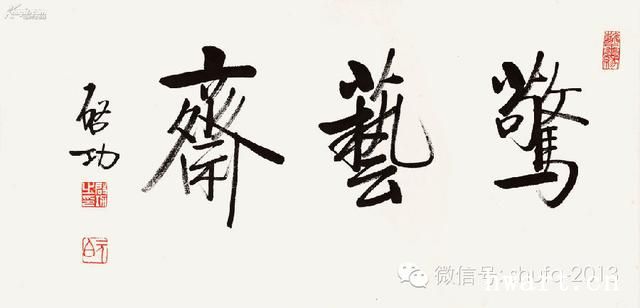 驚藝齋
启功
微信号: shufa-2013